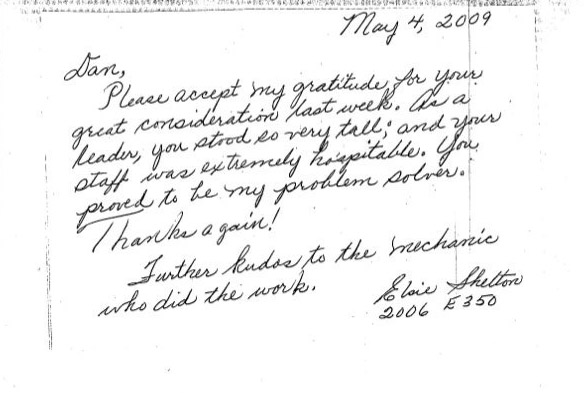 May 4, 2009
Dan,
Please accept my gratitude for your
great consideration last week. As a
leader, you stood so very tall; and your
staff was extremely hospitable. You
proved to be my problem solver.
Thanks again!
Further kudos to the mechanic
who did the work.
Elsie Shelton
2006 E350